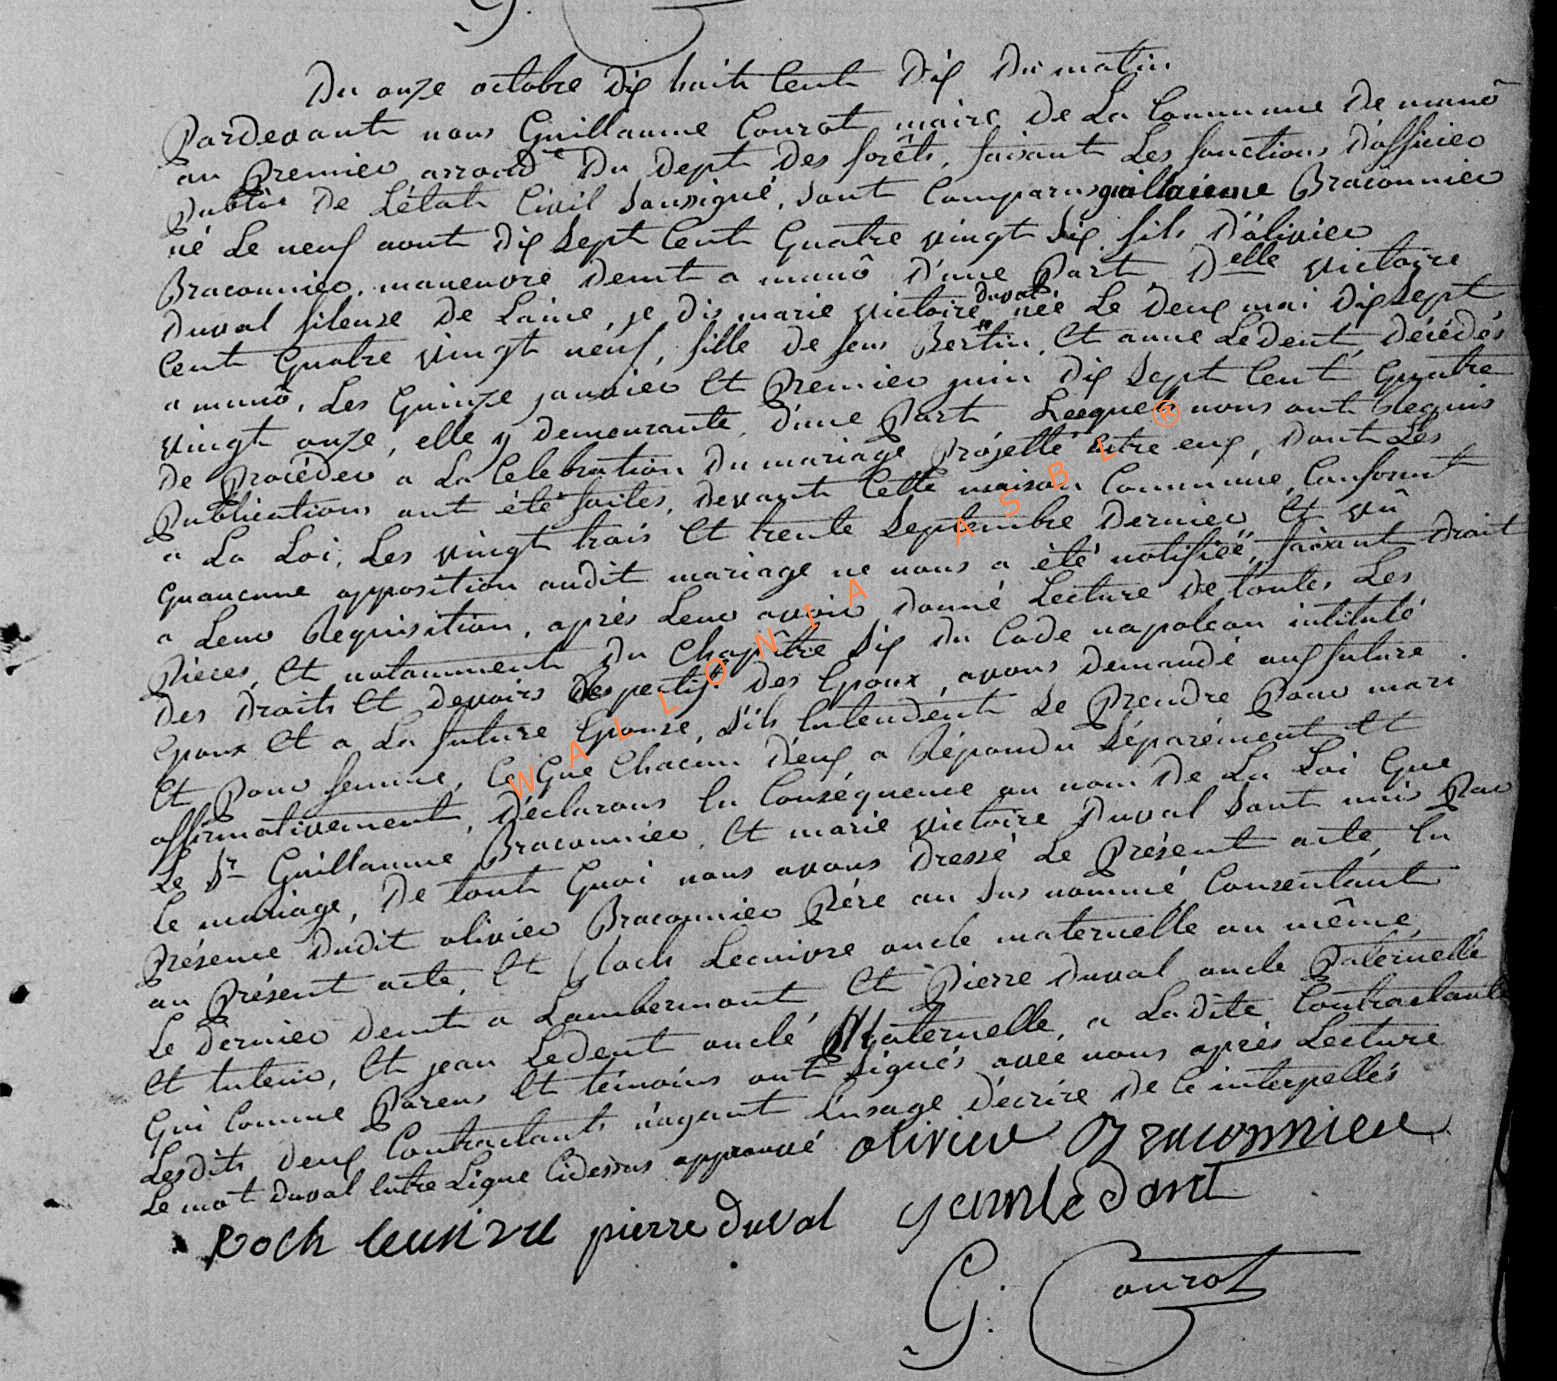 G.
Du onze octobre dix huit Cent dix du matin
Pardevant nous Guillaume Courot maire de La Commune de muno
au Premier arrond.t Du Dept Des forêts, faisant Les fonctions D'officier
Public De L'état Civil Soussigné, Sont Comparus guillaume Braconnier
né Le neuf aout Dix Sept Cent Quatre vingt Six fils D'olivier
Braconnier, maneuvre Demt a muno D'une Part, Delle victoire
Duval fileuse De Laine, je Dis marie victoire Duval née Le Deux mai Dix Sept
Cent Quatre vingt neuf, fille De feus Bertin, Et anne Ledent, Décédés
a muno, Les Quinze janvier Et Premier juin Dix Sept Cent Quatre
vingt onze, elle y Demeurante, D'une Part Lesquels nous ont Requis
De Procéder a La Célébration Du mariage Projetté entre eux, Dont Les
Publications ont été faites, Devant Cette maison Commune, Conformt
a La Loi, Les vingt trois Et trente Septembre Dernier, Et vû
Qu'aucune opposition audit mariage ne nous a été notifiéé, faisant Droit
a Leur Requisition, après Leur avoir Donné Lecture De toutes Les
Pièces, Et notamment Du Chapître Six Du Code napoleon intitulé
Des Droits Et Devoirs Respectifs Des Epoux, avons Demandé aux future
Epoux Et a La future Epouse, S'ils Entendent Se Prendre Pour mari
Et Pour femme, Ce Que Chacun D'eux a Répondu Séparément Et
affirmativement, Déclarons En Conséquence au nom De La Loi Que
Le Sr Guillaume Braconnier, Et marie victoire Duval Sont unis Par
Le mariage, De tout Quoi nous avons Dressé Le Présent acte, En
Présence Dudit olivier Braconnier Père au Sus nommé, Consentant
au Présent acte, Et Roch Lecuivre oncle maternelle au même,
Le Dernier Demt a Lambermont, Et Pierre Duval oncle Paternelle
Et tuteur, Et jean Ledent onclé, Maternelle, a Ladite Contractante
Qui Comme Parens Et témoins ont Signés avec nous après Lecture
Lesdits Deux Contractants n'ayant L'usage D'écrire De Ce interpellés
Le mot Duval Entre Ligne Cidessus approuvé olivier Braconnier
Roch lecuivre pierre duval jean le dant
G. Courot
WALLONIA ASBL ®